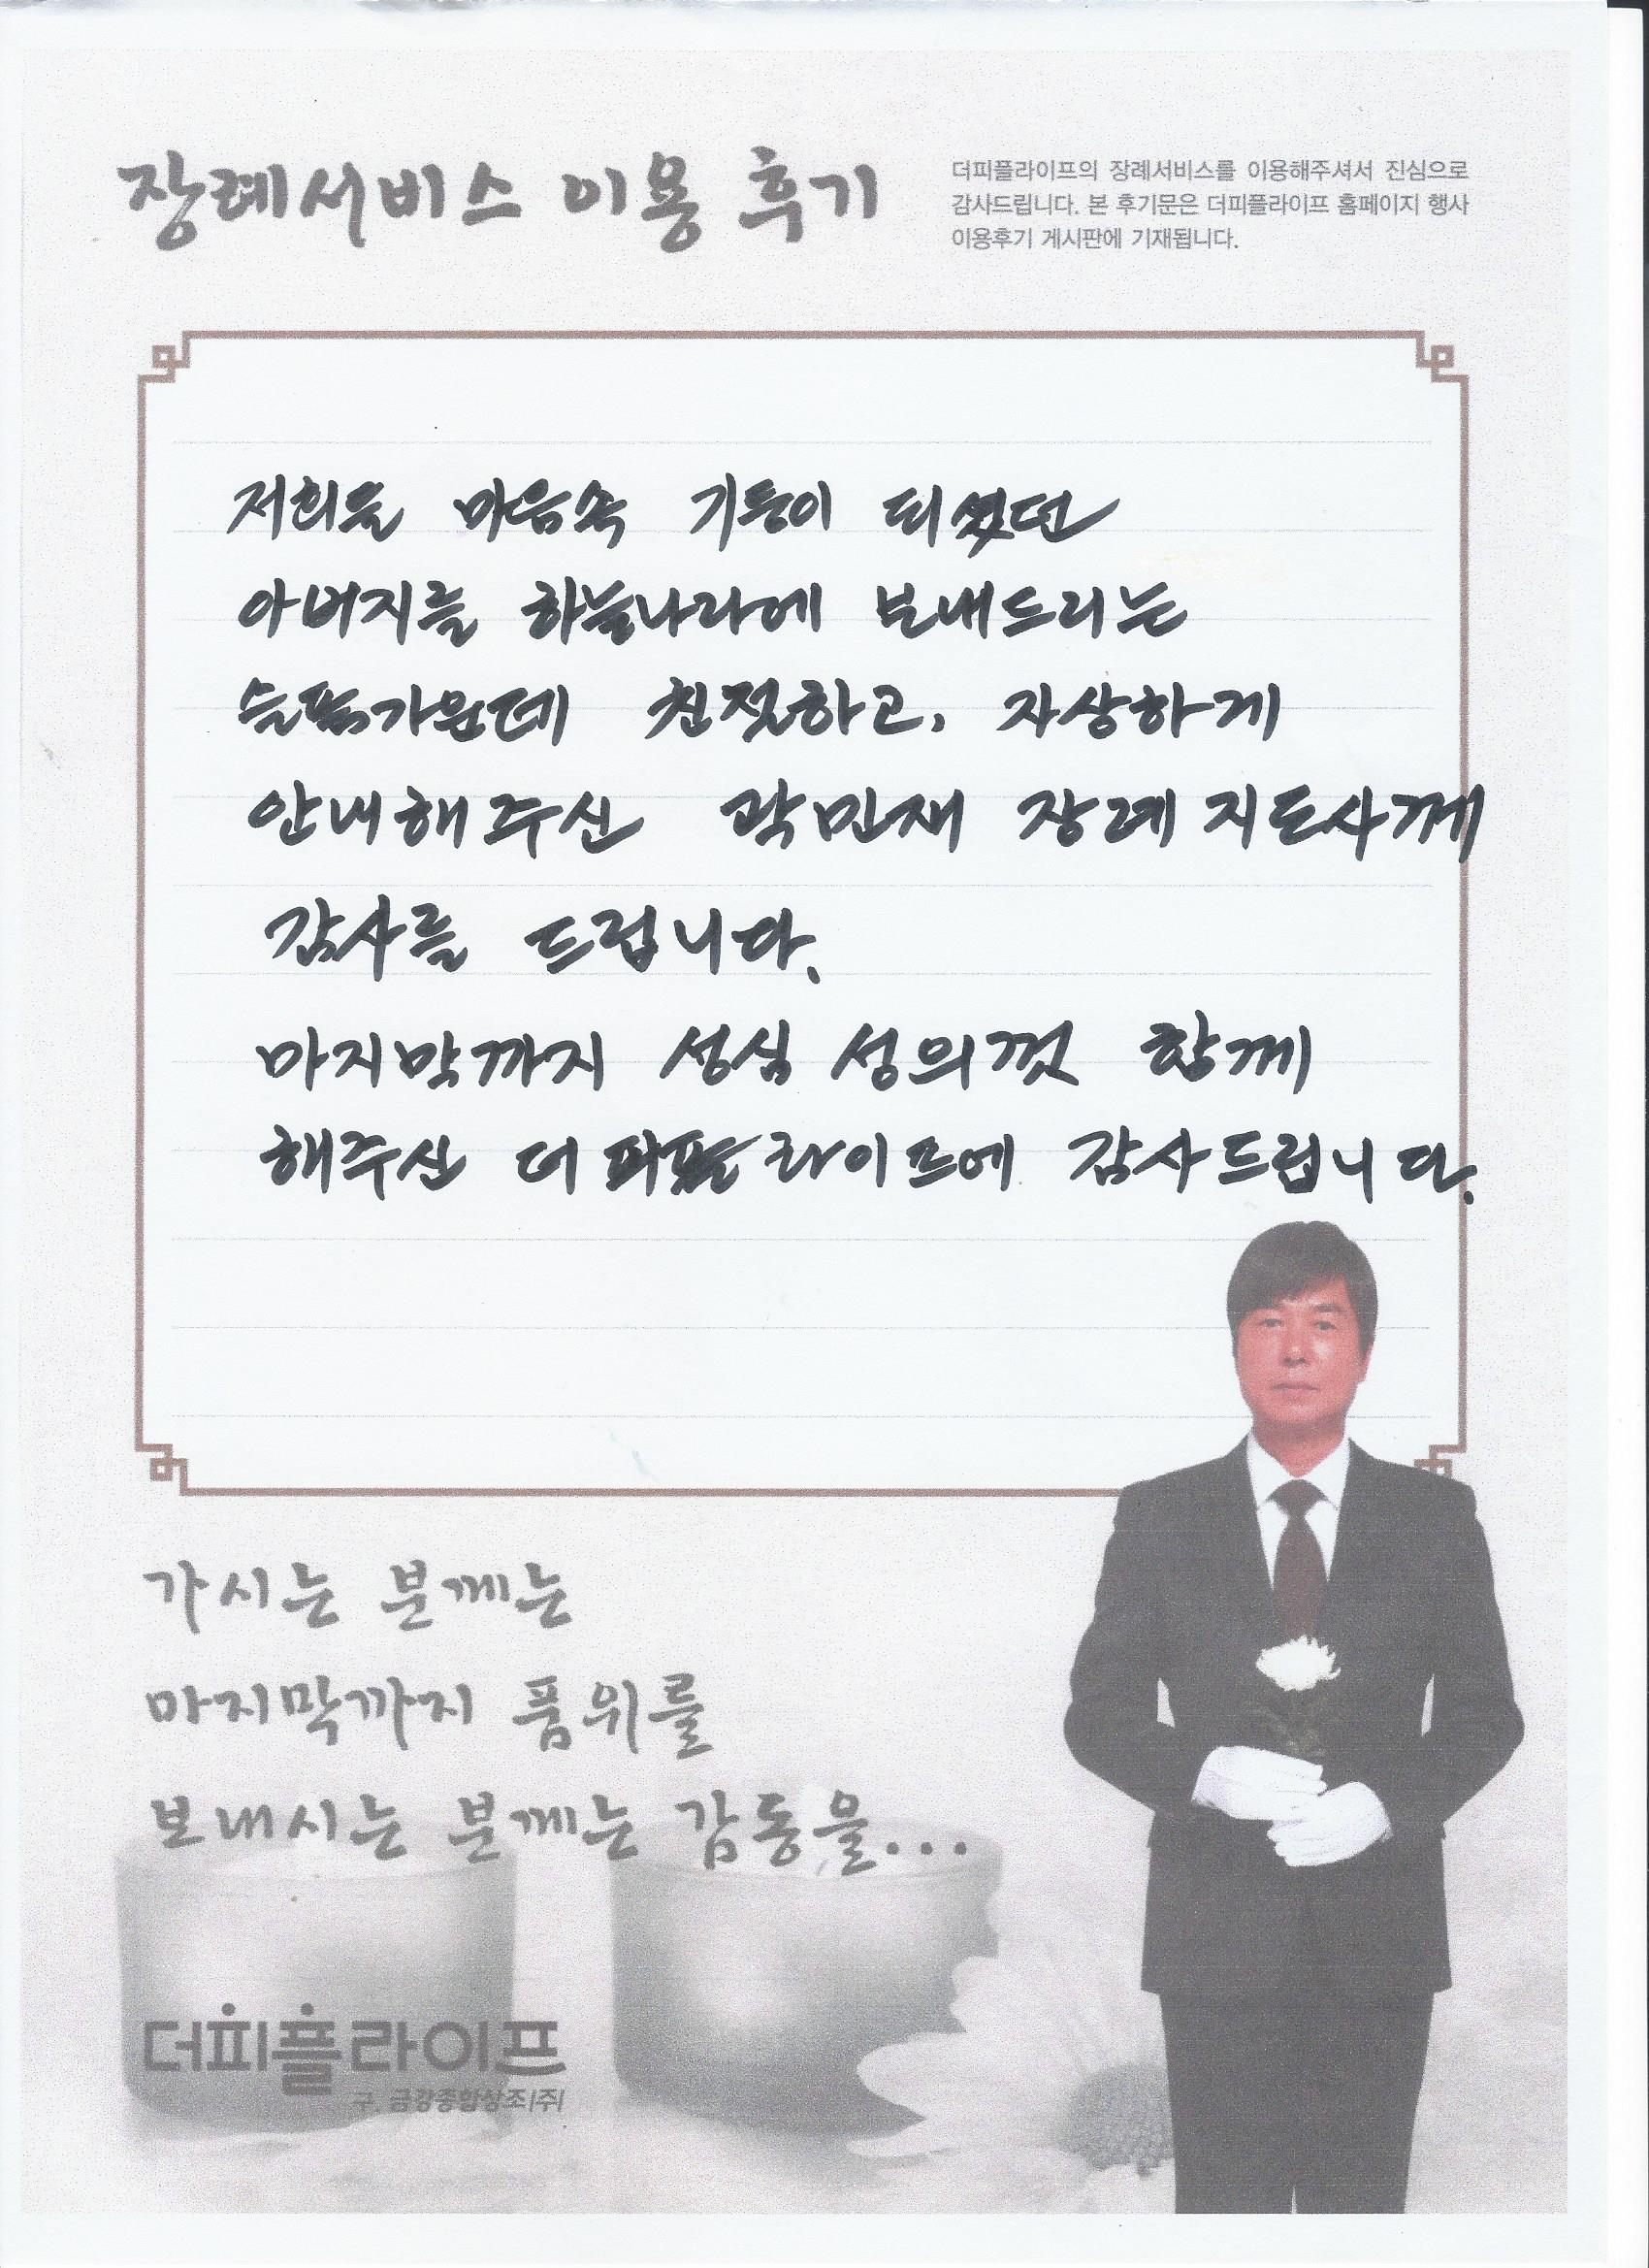 장례서비스 이용 후기
더피플라이프의 장례서비스를 이용해주셔서 진심으로
감사드립니다. 본 후기문은 더피플라이프 홈페이지 행사
이용후기 게시판에 기재됩니다.
저희들 마음속 기둥이 되셨던
아버지를 하늘나라에 보내드리는
슬픔가운데 친절하고, 자상하게
안내해주신 곽민재 장례지도사께
감사를 드립니다.
마지막까지 성심 성의껏 함께
해주신 더피플라이프에 감사드립니다.
가시는 분께는
마지막까지 품위를
보내시는 분께는 감동을...
더피플라이프
구. 금강종합상조(주)